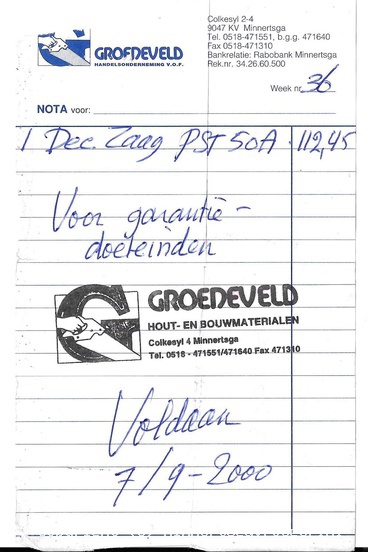 GROENEVELD
HANDELSONDERNEMING V.O.F.
Colkesyl 2-4
9047 KV Minnertsga
Tel. 0518-471551, b.g.g. 471640
Fax 0518-471310
Bankrelatie: Rabobank Minnertsga
Rek.nr. 34.26.60.500
Week nr. 36
NOTA voor:
1 Dec. Zaag PST 50A 112,45
Voor garantie-
doeleinden
GROENEVELD
HOUT- EN BOUWMATERIALEN
Colkesyl 4 Minnertsga
Tel. 0518 - 471551/471640 Fax 471310
Voldaan
7/9-2000